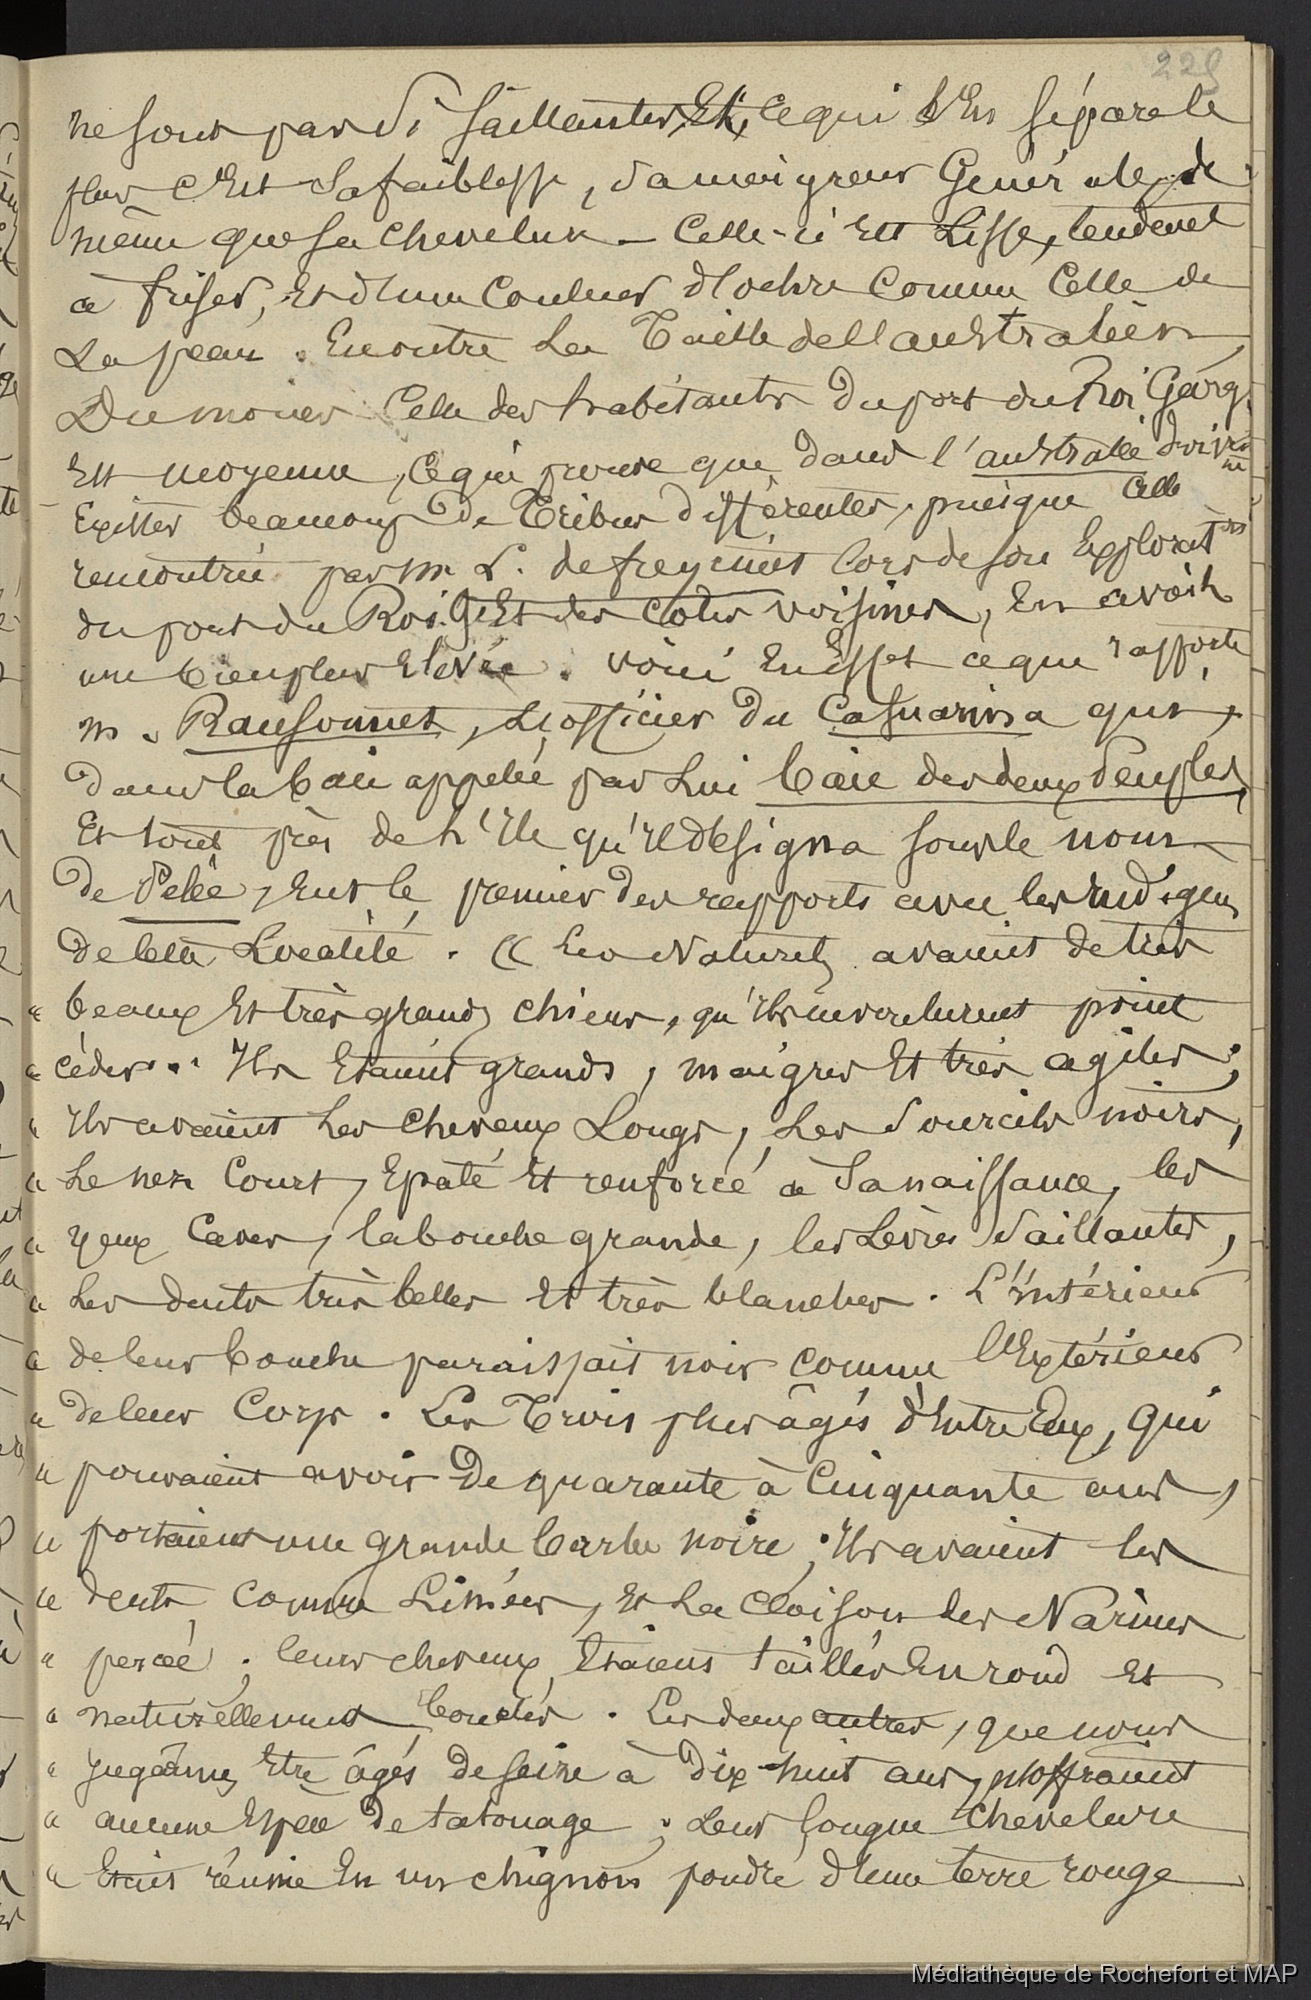 229
ne sont pas si saillantes, Et, ce qui l'En sépare le
plus c'Est sa faiblesse, sa maigreur Générale, de
même que sa chevelure — Celle-ci Est Lisse, tendant
à friser, Et d'une Couleur d'ochre Comme Celle de
La peau. En outre La Taille de l'australien,
Du moins Celle des habitants du port du Roi Georg.
Est moyenne, Ce qui prouve que dans l'australie doivent
Exister beaucoup de Tribus différentes, puisque celle
rencontrée par M. L. de freycinet lors de son Explorat.on
du port du Roi G. Et des Cotes voisines, En avait
une bien plus Elevée. voici En Effet ce que rapporte
M. Ransonnet, L'officier du Casuarina qui,
dans la baie appelée par Lui baie des deux Peuples,
Et tout près de l'Ile qu'Il désigna sous le nom
de Pelée, Eut le premier des rapports avec les Indigens
de cette Localité. « Les Naturels avaient de très
« beaux Et très grands chiens, qu'Ils ne voulurent point
« céder... Ils Etaient grands, maigres Et très agiles;
« Ils avaient Les cheveux Longs, Les Sourcils noirs,
« Le nez Court, Epaté Et renforcé à Sa naissance, les
« yeux Caves, la bouche grande, les Lèvres Saillantes,
« Les dents très belles Et très blanches. L'intérieur
« de leur bouche paraissait noir comme l'Extérieur
« de leur Corps. Les Trois plus âgés d'Entre Eux, qui
« pouvaient avoir De quarante à Cinquante ans,
« portaient une grande barbe noire; Ils avaient les
« dents comme Limées, Et La Cloison des Narines
« percée; leurs cheveux Etaient taillés En rond Et
« naturellement bouclés. Les deux autres, que nous
« jugeâmes Etre âgés de seize à dix-huit ans, n'offraient
« aucune Espèce De tatouage; Leur longue Chevelure
« Etait réunie En un chignon poudré d'une terre rouge
Médiathèque de Rochefort et MAP